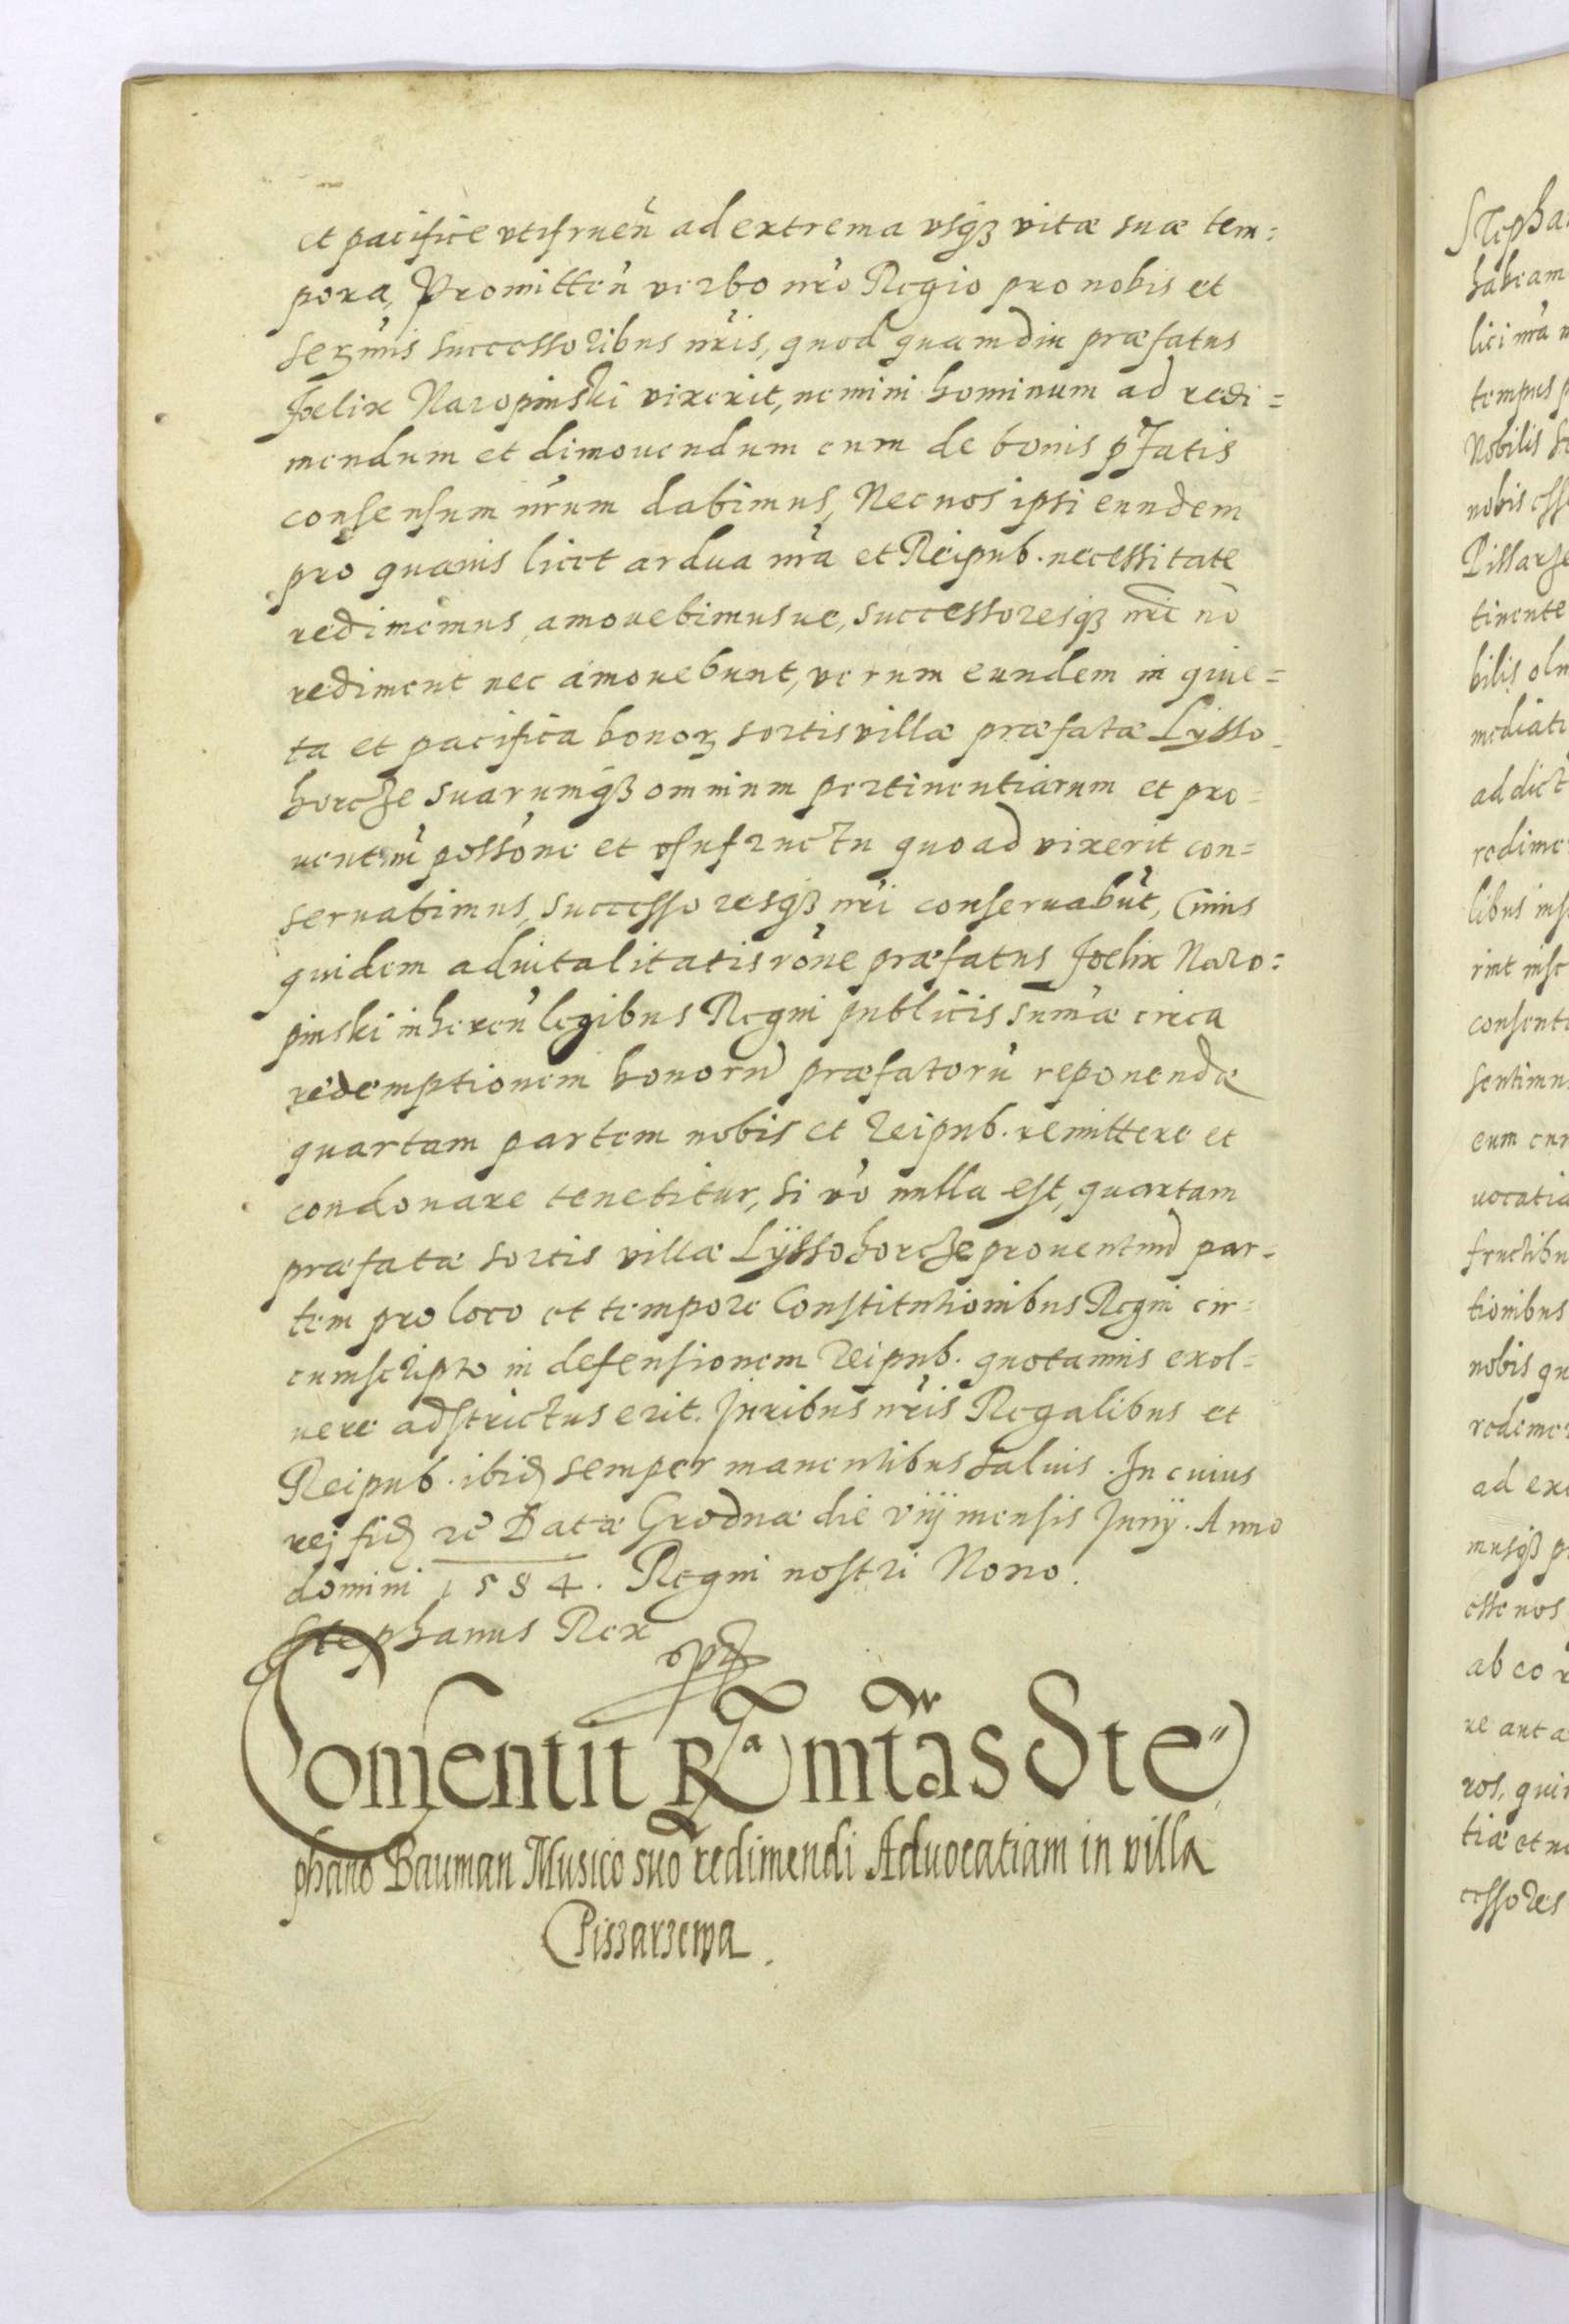 et pacifice vtifruen̄ ad extrema vsqꝫ vitæ suæ tem=
pora, Promitten̄ verbo nr̄o Regio pro nobis et
serm̄is successoribus nr̄is, quod quamdiu præfatus
Foelix Naropinski vixerit, nemini hominum ad redi=
mendum et dimouendum eum de bonis p̄fatis
consensum nr̄um dabimus, Nec nos ipsi eundem
pro quauis licet ardua nr̄a et Reipub. necessitate
redimemus, amouebimusue, successoresqꝫ nr̄i nō
rediment nec amouebunt, verum eundem in quie=
ta et pacifica bonoꝝ sortis villæ præfatæ Lysso
horcze suarumqꝫ omnium pertinentiarum et pro=
uentuū possōne et vsufructu quoad vixerit con=
seruabimus, successoresqꝫ nr̄i conseruabūt, Cuius
quidem aduitalitatis rōne præfatus Foelix Naro=
pinski inheren̄ legibus Regni publicis summæ circa
redemptionem bonorū præfatorū reponendæ
quartam partem nobis et Reipub. remittere et
condonare tenebitur, si vō nulla est, quartam
præfatæ sortis villæ Lÿssohorcze prouentuū par=
tem pro loco et tempore Constitutionibus Regni cir=
cumscripto in defensionem Reipub. quotannis exol=
uere adstrictus erit. Juribus nr̄is Regalibus et
Reipub. ibid̄ semper manentibus saluis. In cuius
rej fid̄ rc̄ Datæ Grodnæ die viij mensis Junij. Anno
domini 1584. Regni nostri Nono.
Stephanus Rex
Consentit Rᵃ mt̄as Ste
phano Bauman Musico suo redimendi Aduocatiam in villa
Piszarzewa.
Stepha
habeam
lici nr̄a
tempus
Nobilis
nobis
Pissarze
tinente
bilis
mediat
ad dict
redime
libus
rint
consent
sentimu
eum
uocatia
fructibu
tionibus
nobis
redeme
ad ex
musqꝫ
esse nos
ab eo
re aut a
ros, qui
tiæ et
cessores